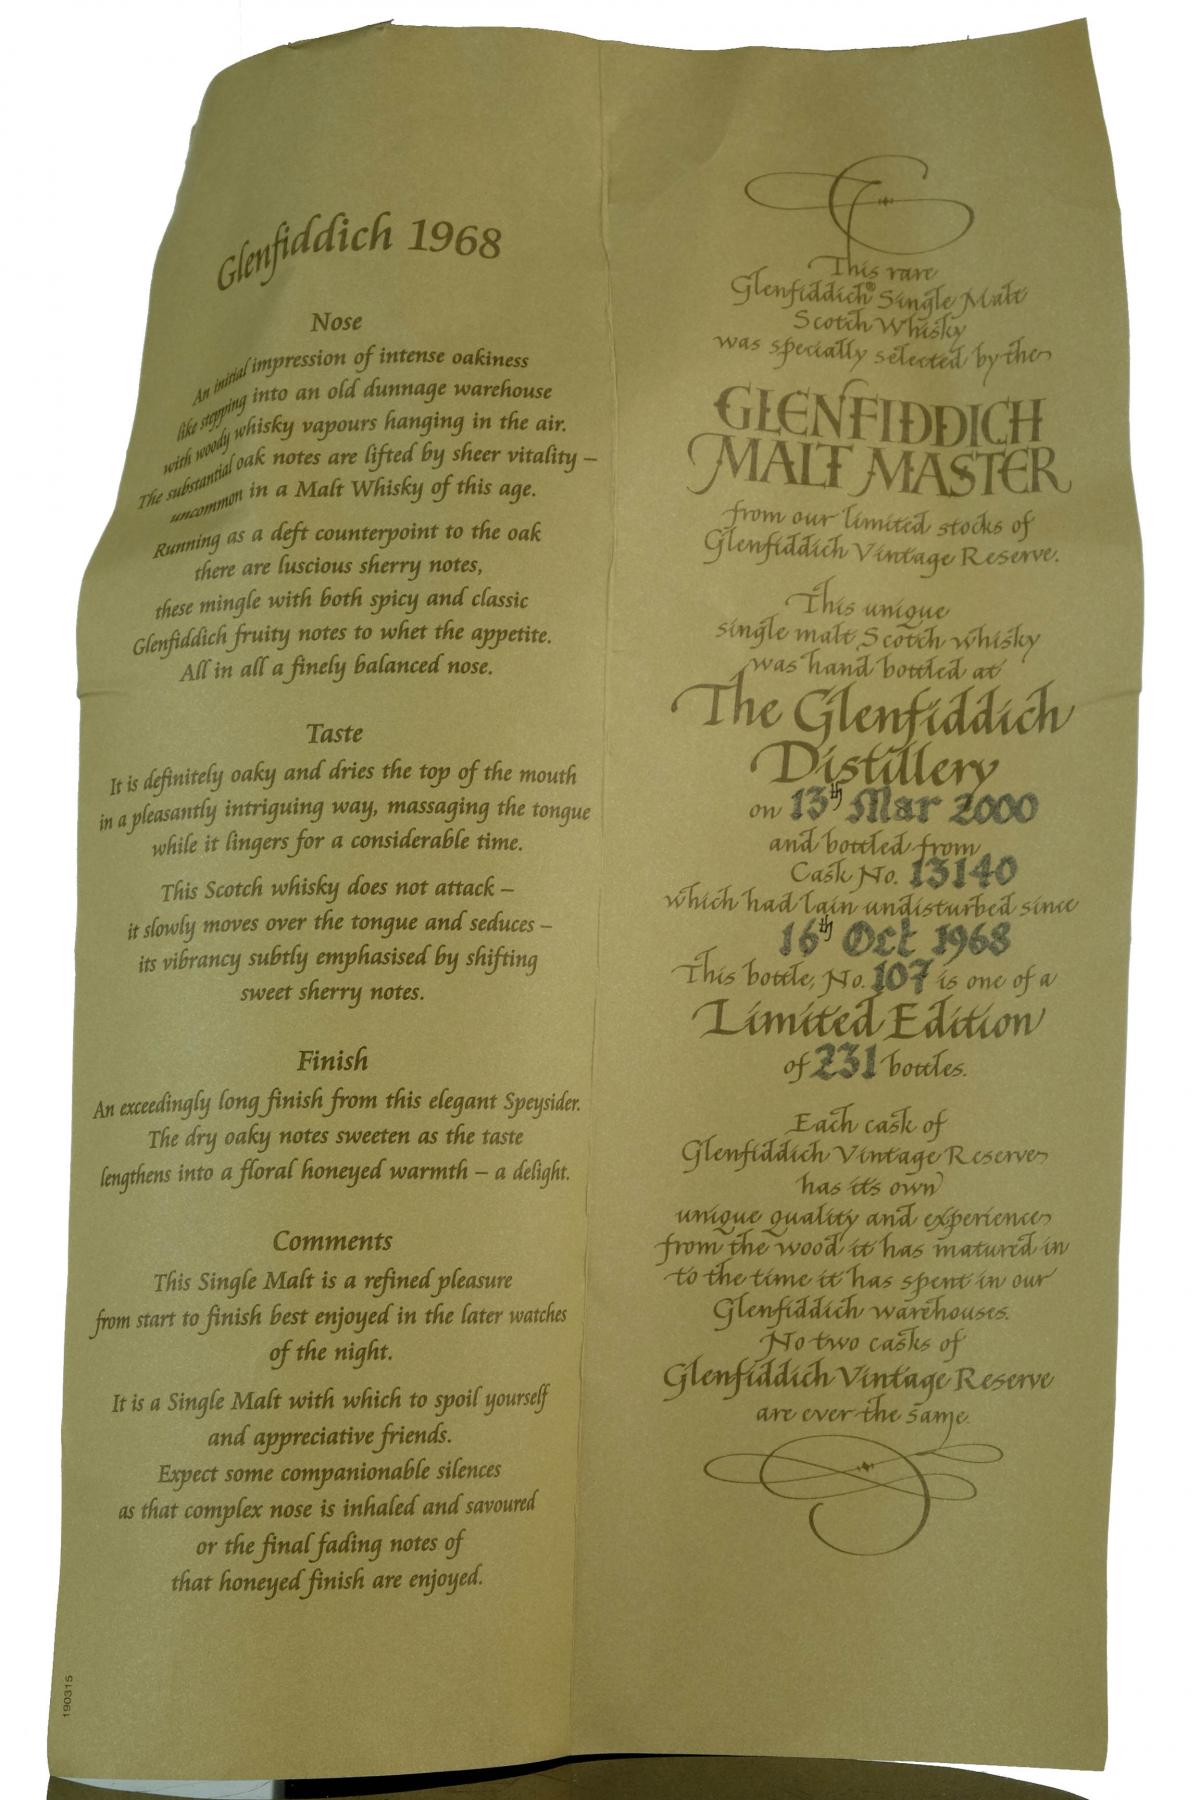 Glenfiddich 1968
Nose
An initial impression of intense oakiness
like stepping into an old dunnage warehouse
with woody whisky vapours hanging in the air.
The substantial oak notes are lifted by sheer vitality –
uncommon in a Malt Whisky of this age.
Running as a deft counterpoint to the oak
there are luscious sherry notes,
these mingle with both spicy and classic
Glenfiddich fruity notes to whet the appetite.
All in all a finely balanced nose.
Taste
It is definitely oaky and dries the top of the mouth
in a pleasantly intriguing way, massaging the tongue
while it lingers for a considerable time.
This Scotch whisky does not attack –
it slowly moves over the tongue and seduces –
its vibrancy subtly emphasised by shifting
sweet sherry notes.
Finish
An exceedingly long finish from this elegant Speysider.
The dry oaky notes sweeten as the taste
lengthens into a floral honeyed warmth – a delight.
Comments
This Single Malt is a refined pleasure
from start to finish best enjoyed in the later watches
of the night.
It is a Single Malt with which to spoil yourself
and appreciative friends.
Expect some companionable silences
as that complex nose is inhaled and savoured
or the final fading notes of
that honeyed finish are enjoyed.
190315
This rare
Glenfiddich® Single Malt
Scotch Whisky
was specially selected by the
GLENFIDDICH
MALT MASTER
from our limited stocks of
Glenfiddich Vintage Reserve.
This unique
single malt Scotch whisky
was hand bottled at
The Glenfiddich
Distillery
on 13th Mar 2000
and bottled from
Cask No. 13140
which had lain undisturbed since
16th Oct 1968
This bottle, No. 107 is one of a
Limited Edition
of 231 bottles.
Each cask of
Glenfiddich Vintage Reserve
has its own
unique quality and experience
from the wood it has matured in
to the time it has spent in our
Glenfiddich warehouses.
No two casks of
Glenfiddich Vintage Reserve
are ever the same.